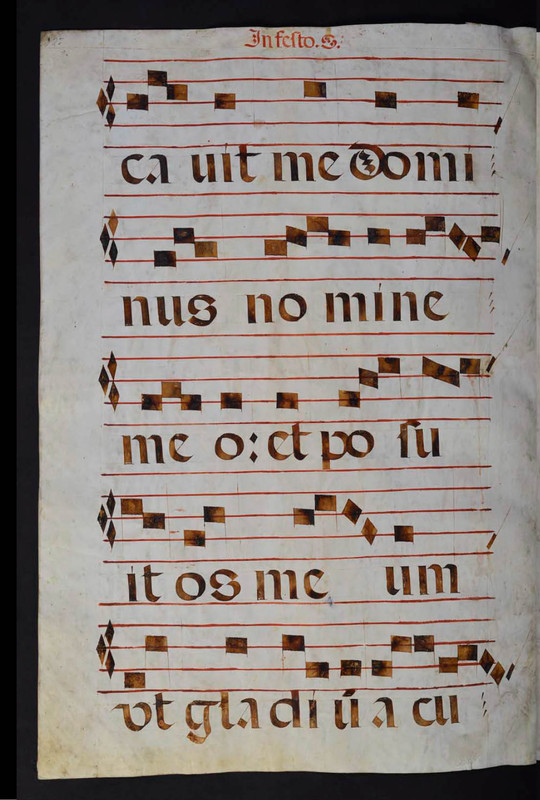 In festo. S.
ca uit me Domi
nus no mine
me o: et po su
it os me um
vt gladi ú a cu